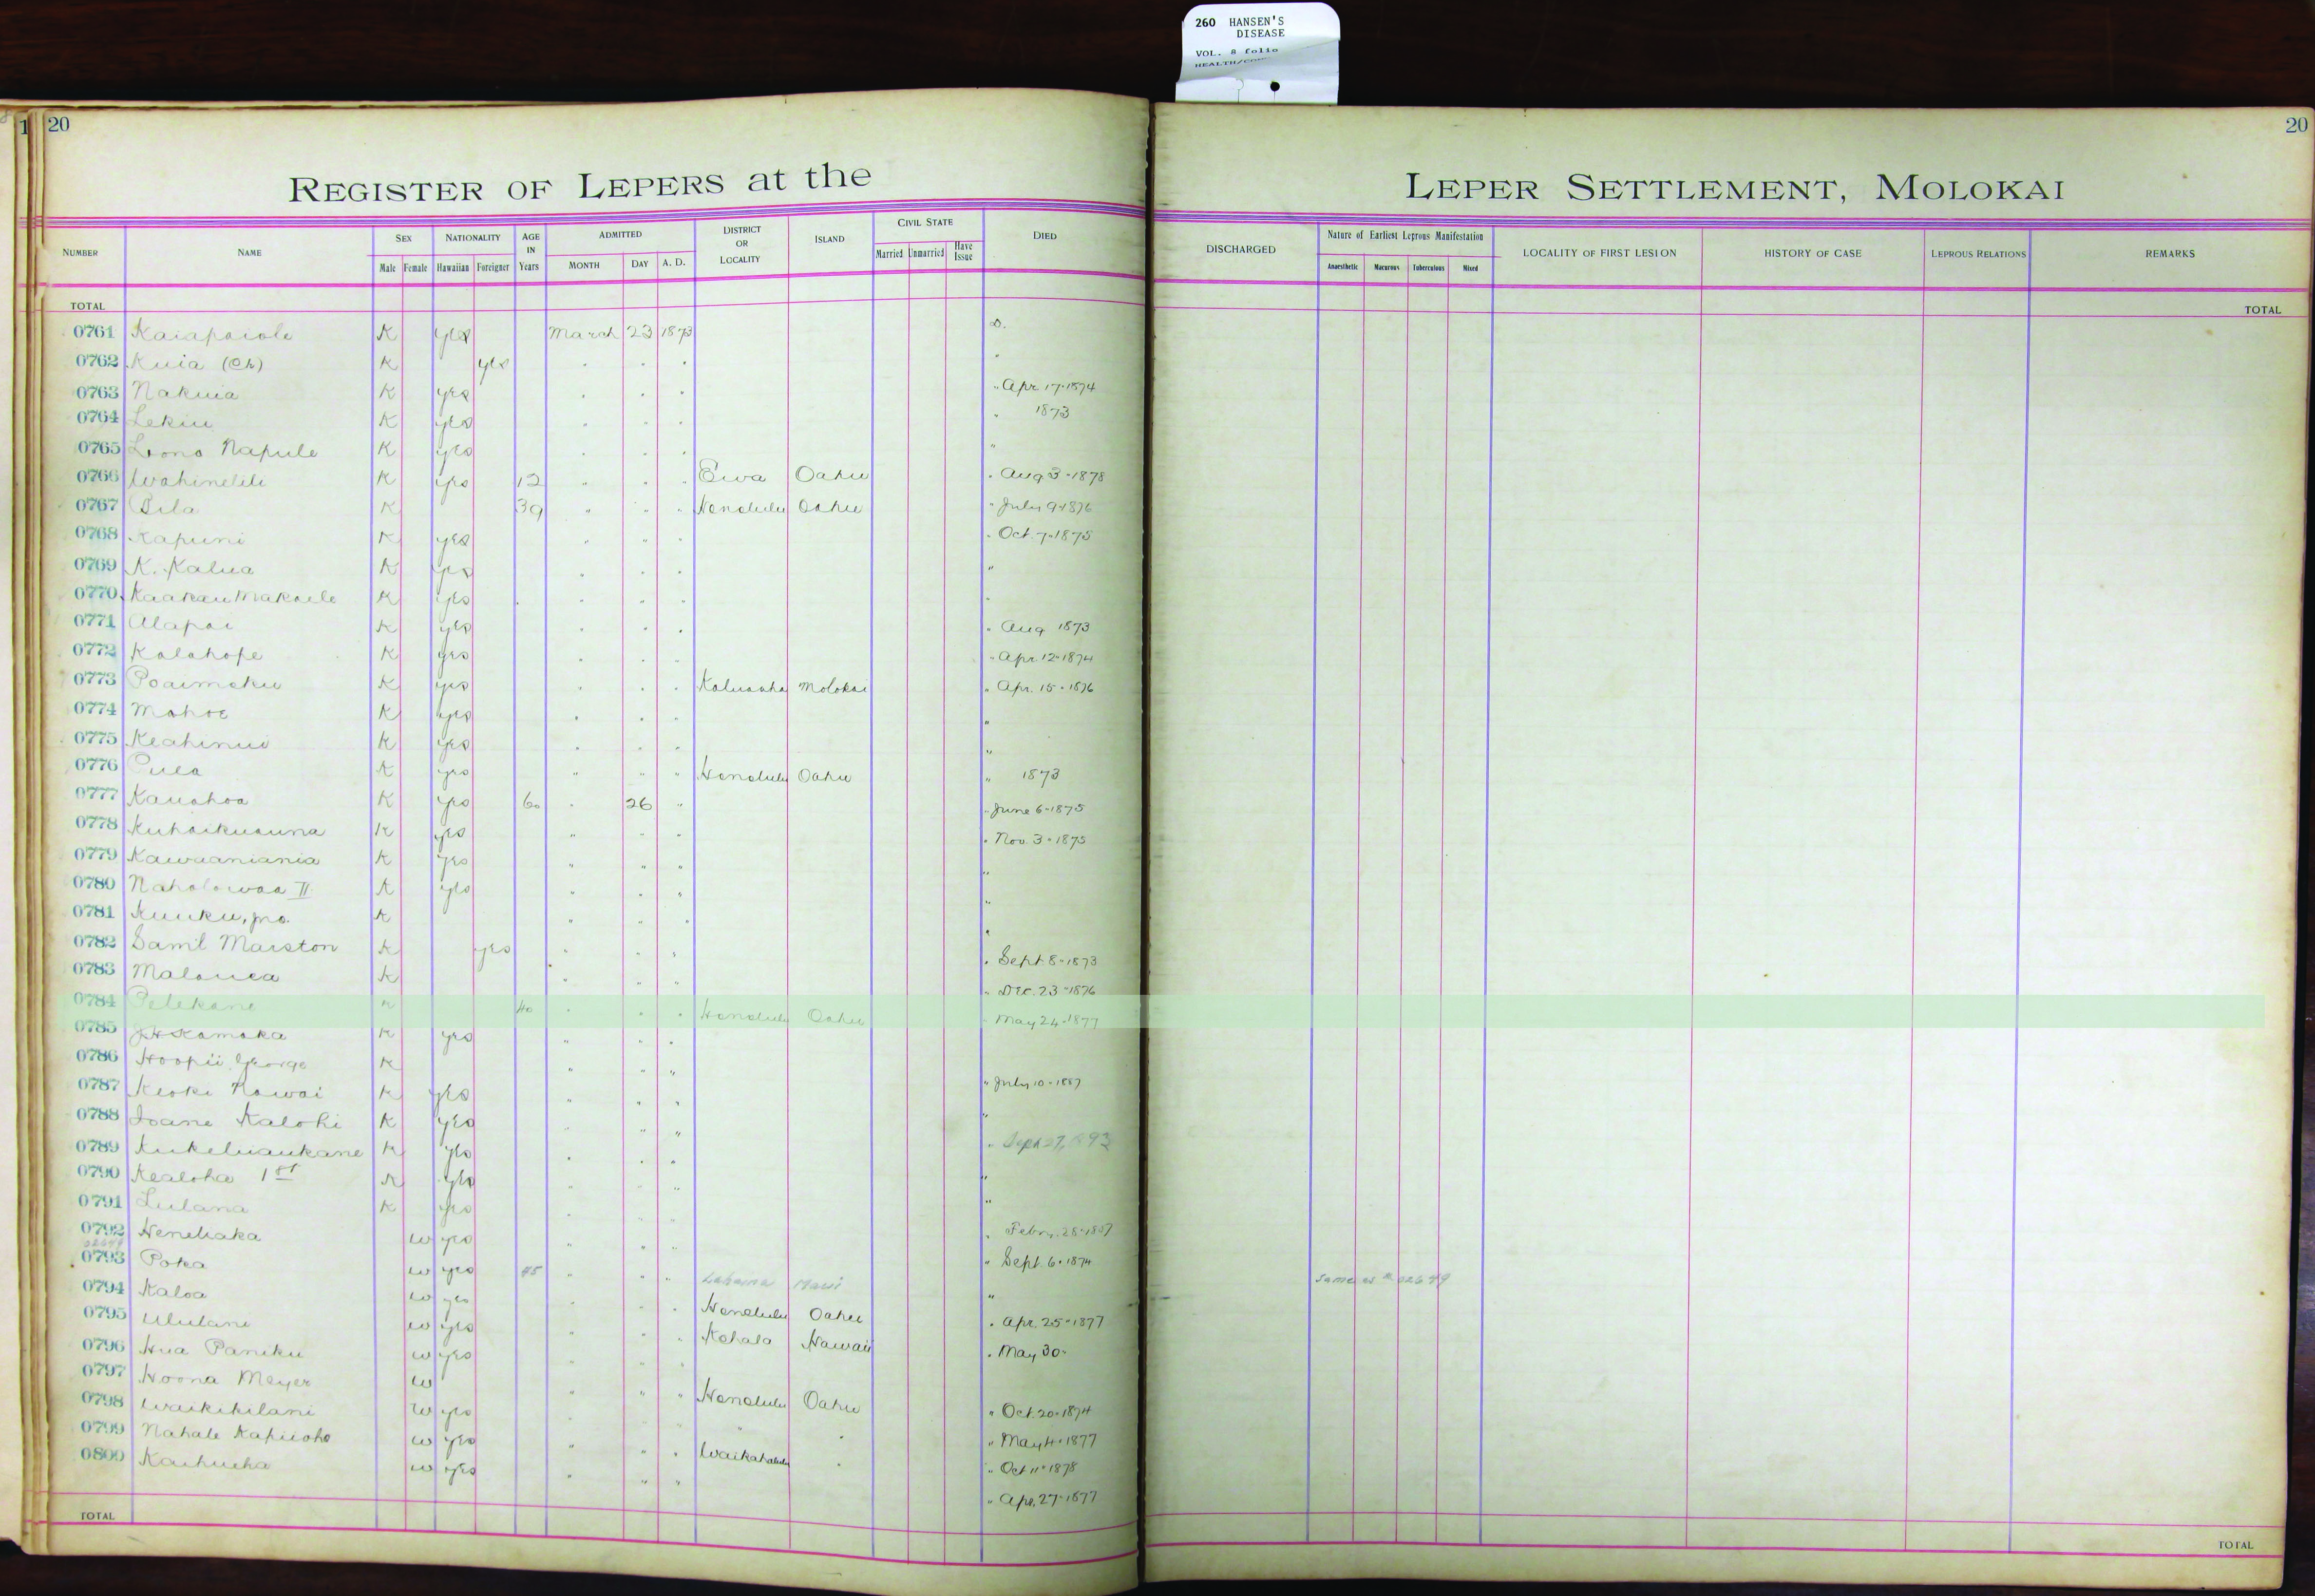 260 HANSEN'S
DISEASE
VOL. 8 folio
1 20
20
REGISTER OF LEPERS at the LEPER SETTLEMENT, MOLOKAI
NUMBER NAME SEX Male Female NATIONALITY Hawaiian Foreigner AGE IN Years ADMITTED MONTH DAY A. D. DISTRICT OR LOCALITY ISLAND CIVIL STATE Married Unmarried Have Issue DIED DISCHARGED Nature of Earliest Leprous Manifestation Anaesthetic Tuberculous Mixed LOCALITY OF FIRST LESION HISTORY OF CASE LEPROUS RELATIONS REMARKS
TOTAL TOTAL
0761 Kaiapaiole K yes March 23 1873 D.
0762 Kuia (Ch) K yes " " " "
0763 Nakuia K yes " " " " Apr 17-1874
0764 Lekiu K yes " " " " 1873
0765 Lono Napule K yes " " " "
0766 Wahinelili K yes 12 " " " Ewa Oahu " Aug 3-1878
0767 Pila K 39 " " " Honolulu Oahu " July 9-1876
0768 Kapuni K yes " " " " Oct. 7-1875
0769 K. Kalua K yes " " " "
0770 Kaakau Makaele K yes " " " "
0771 Alapai K yes " " " " Aug 1873
0772 Kalahope K yes " " " " Apr. 12-1874
0773 Poaimoku K yes " " " Kaluaaha Molokai " Apr. 15-1876
0774 Mahoe K yes " " " "
0775 Keahinui K yes " " " "
0776 Pula K yes " " " Honolulu Oahu " 1873
0777 Kauahoa K yes 60 " 26 " " June 6-1875
0778 Kuhaikuauna K yes " " " " Nov. 3-1875
0779 Kawaaniania K yes " " " "
0780 Naholowaa II K yes " " " "
0781 Kuuku, jno. K " " " "
0782 Saml Marston K yes " " " " Sept 8-1873
0783 Malauea K " " " " Dec. 23-1876
0784 Pelekane K 40 " " " Honolulu Oahu May 24-1877
0785 J H Kamaka K yes " " "
0786 Hoopii George K " " " " July 10-1887
0787 Keoki Kawai K yes " " " "
0788 Ioane Kalohi K yes " " " " Sept 27, 1893
0789 Kukeluaukane K yes " " " "
0790 Kealoha 1st K yes " " " "
0791 Lulana K yes " " " " Febr. 28-1887
0792 Henehaka W yes " " " " Sept. 6-1874
02649
0793 Poka W yes 45 " " " Lahaina Maui " Same as # 02649
0794 Kaloa W yes " " " Honolulu Oahu " Apr. 25-1877
0795 Ululani W yes " " " Kohala Hawaii " May 30-
0796 Hua Paniku W yes " " "
0797 Hoona Meyer W " " " Honolulu Oahu " Oct. 20-1874
0798 Waikikilani W yes " " " " " " May 4-1877
0799 Nahale Kapuoho W yes " " " Waikahalulu " " Oct 11-1878
0800 Kaihueha W yes " " " " Apr. 27-1877
TOTAL TOTAL